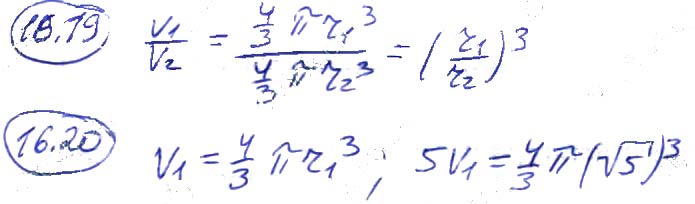 18.19 V1/V2 = (4/3 π r1³)/(4/3 π r2³) = (r1/r2)³
16.20 V1 = 4/3 π r1³ ; 5V1 = 4/3 π (√5)³